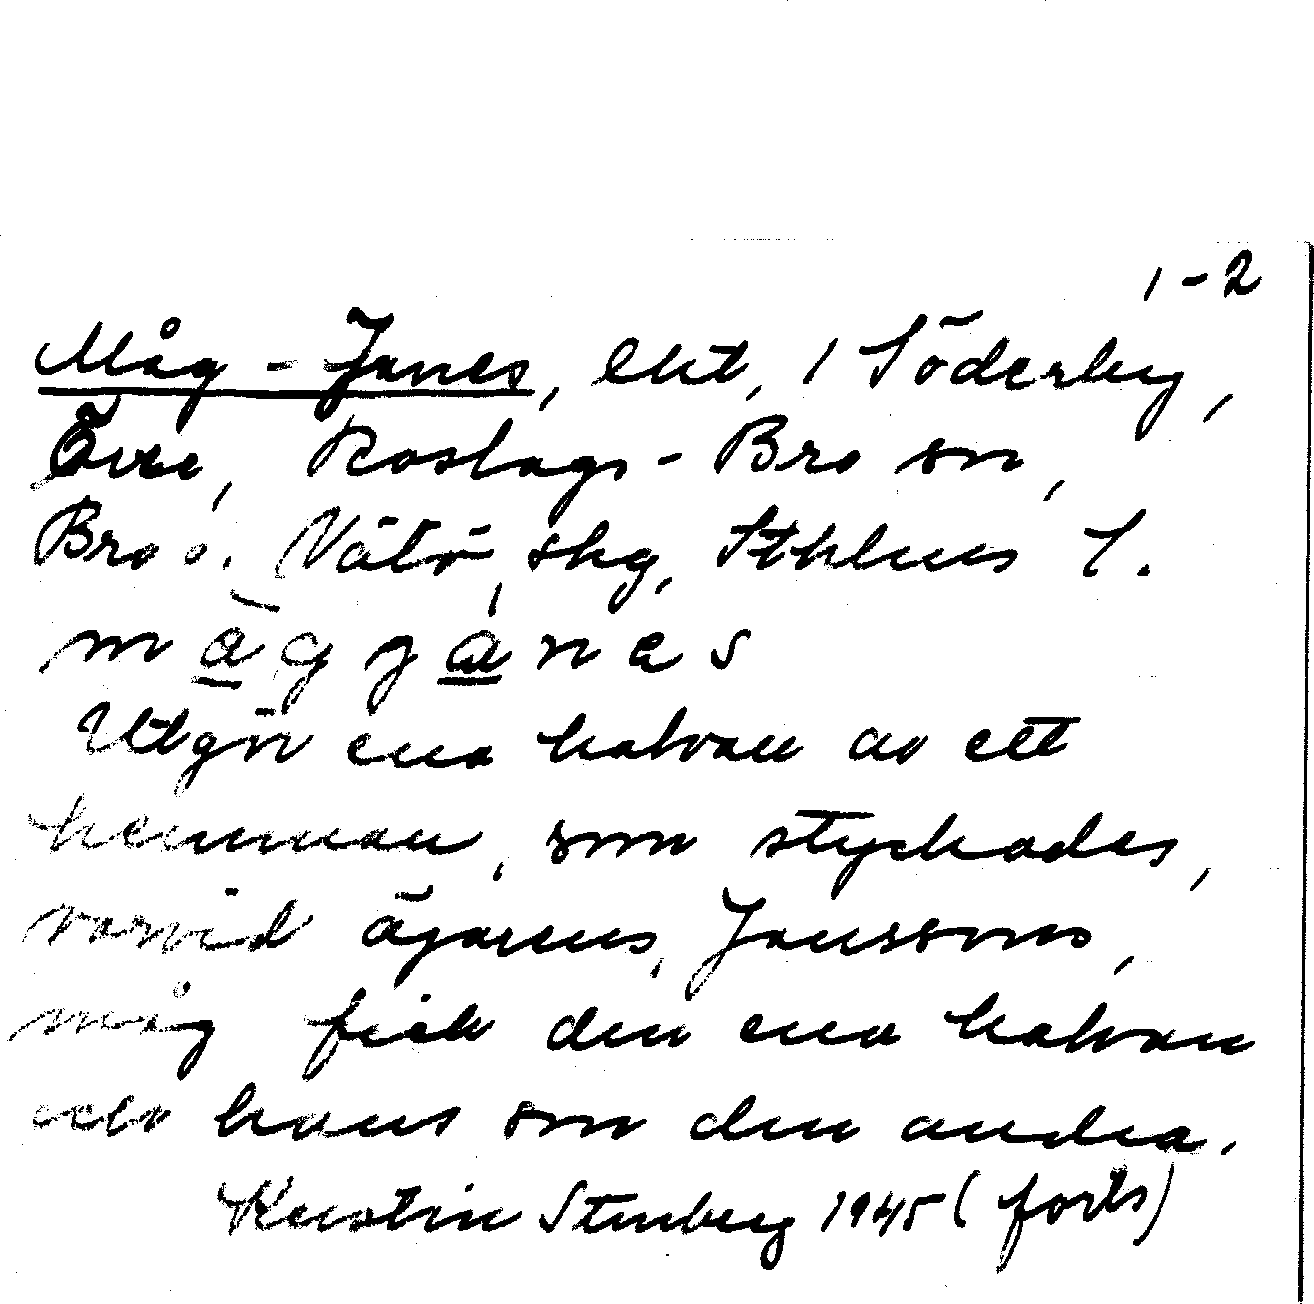 1-2
Måg-Janes, lht, 1 Söderby,
Övre, Roslags-Bro sn,
Bro o. Vätö skg, Sthlms l.
mågjánes
Utgör ena halvan av ett
hemman, som styckades,
varvid ägarens, Janssons,
måg fick den ena halvan
och hans son den andra.
Kerstin Stenberg 1945 (forts)